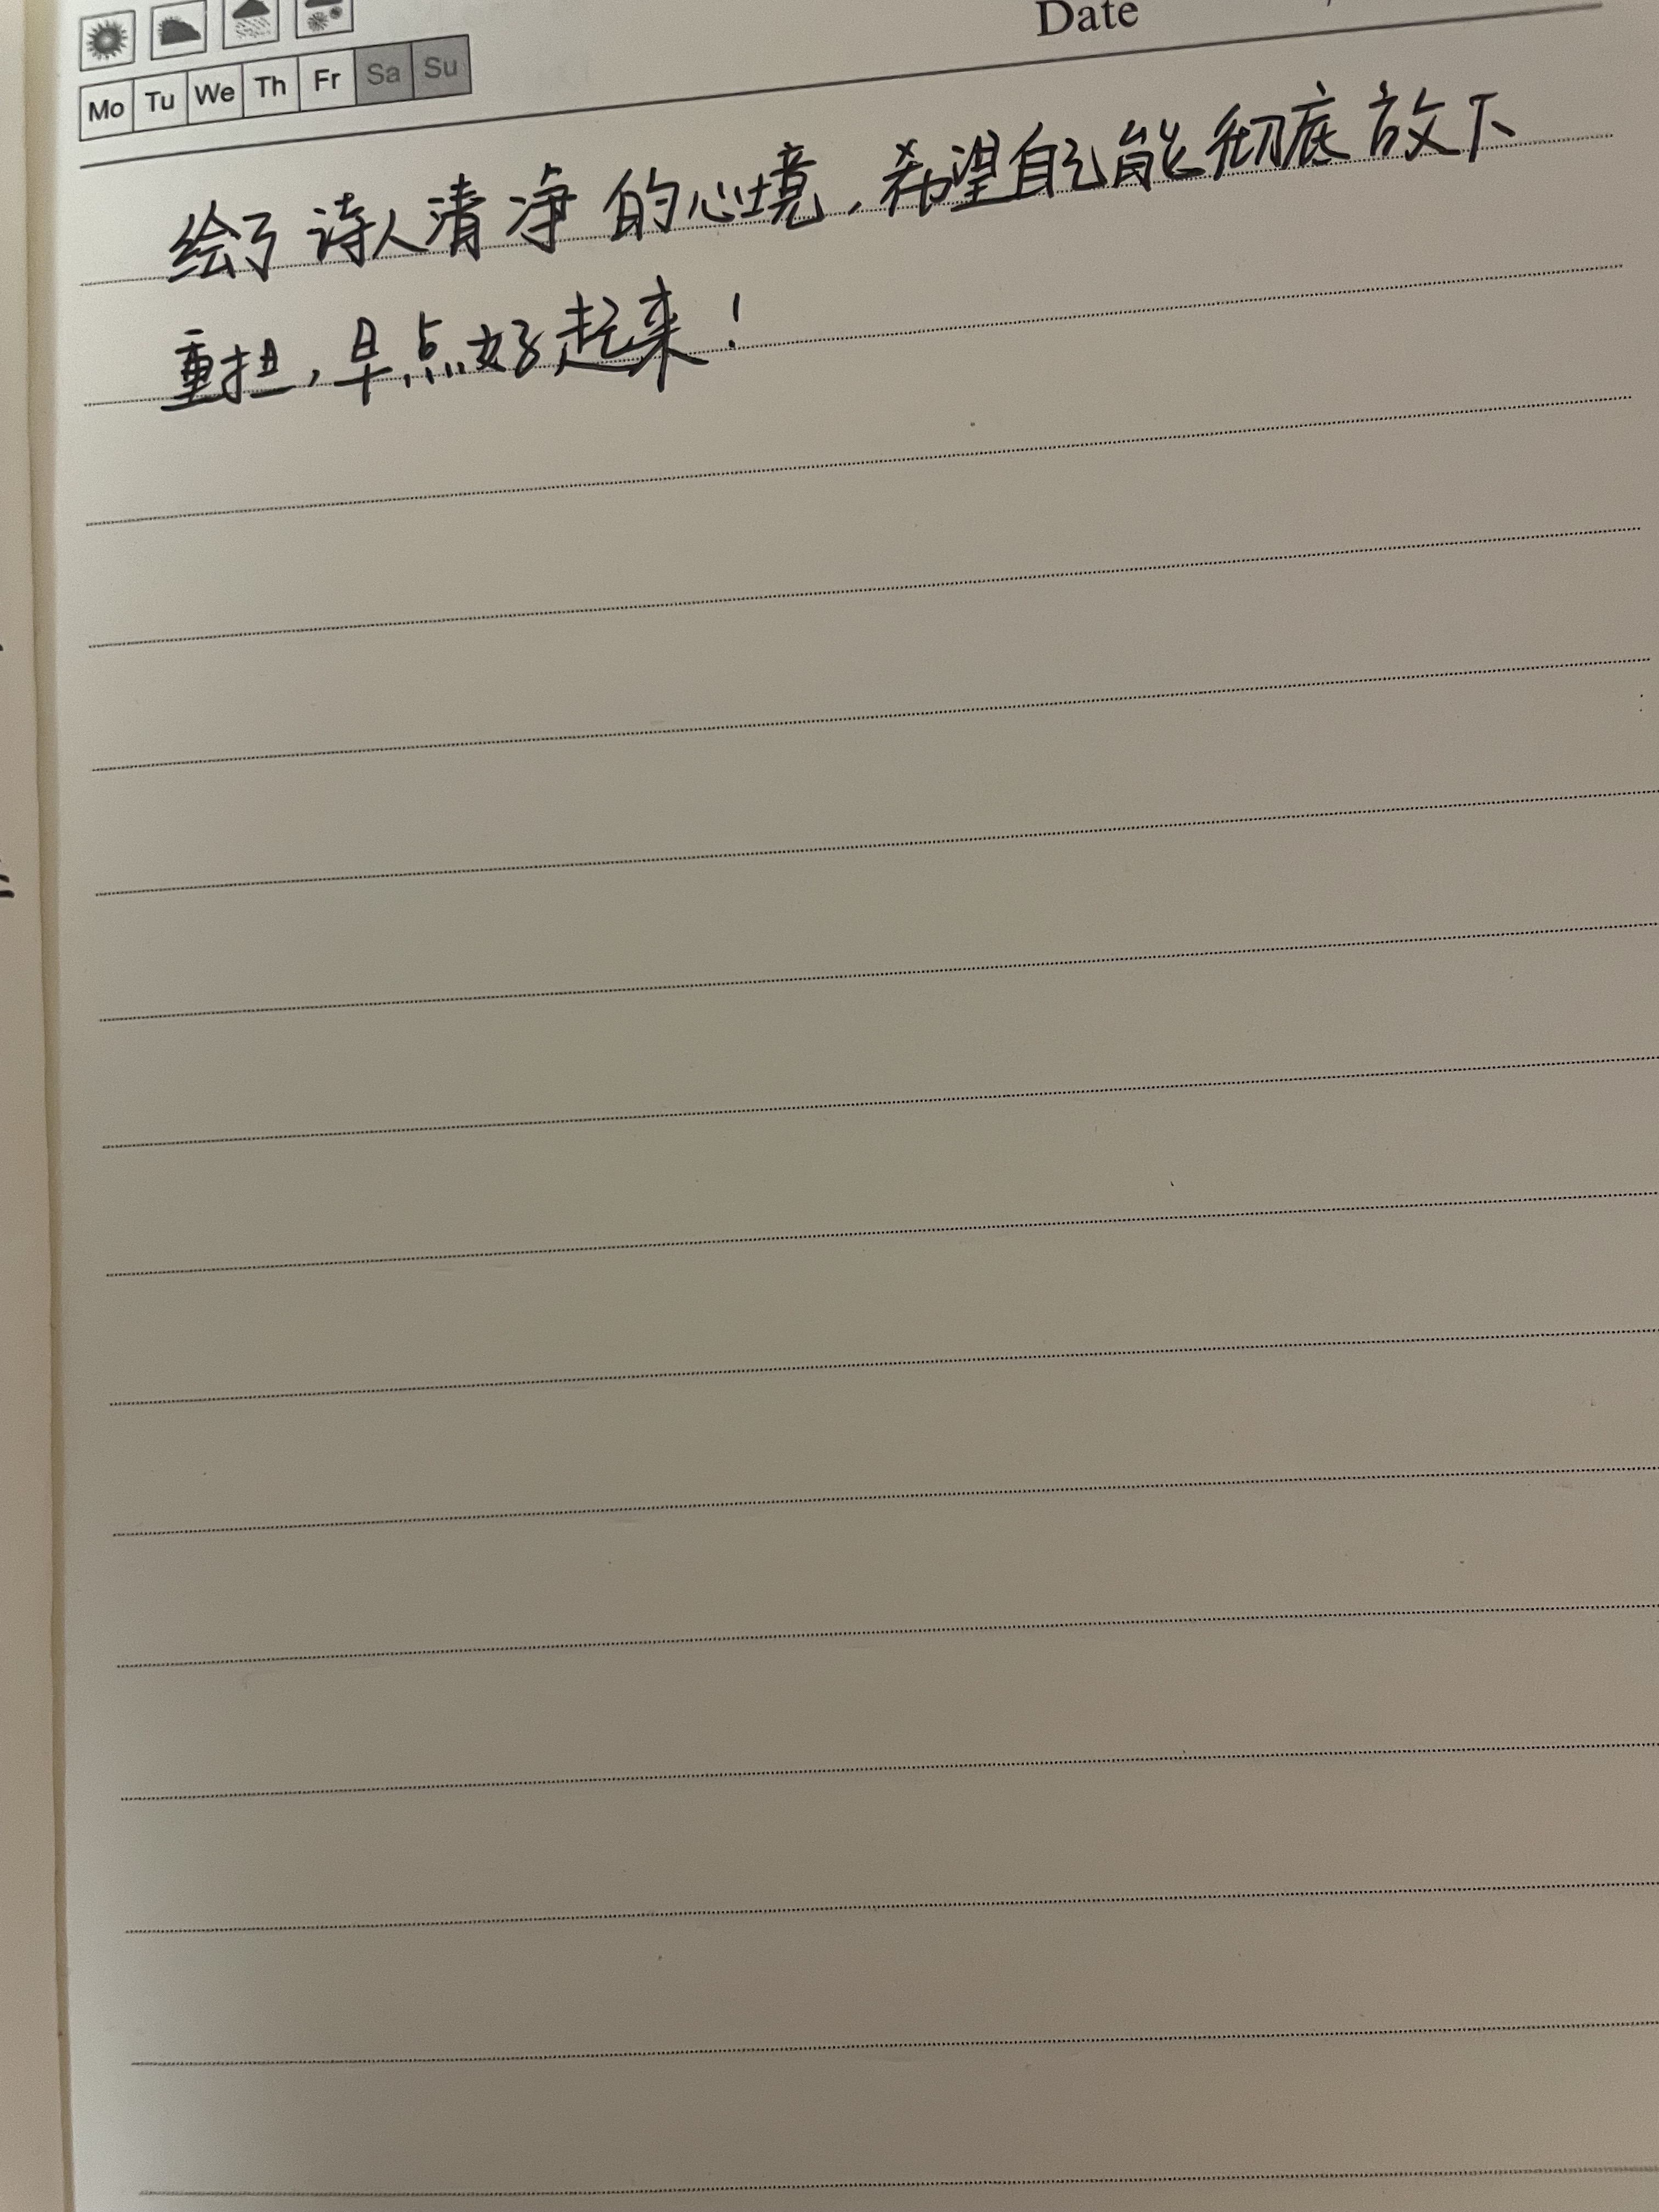 Date
Mo Tu We Th Fr Sa Su
绘了诗人清净的心境,希望自己能彻底放下
重担,早点好起来!